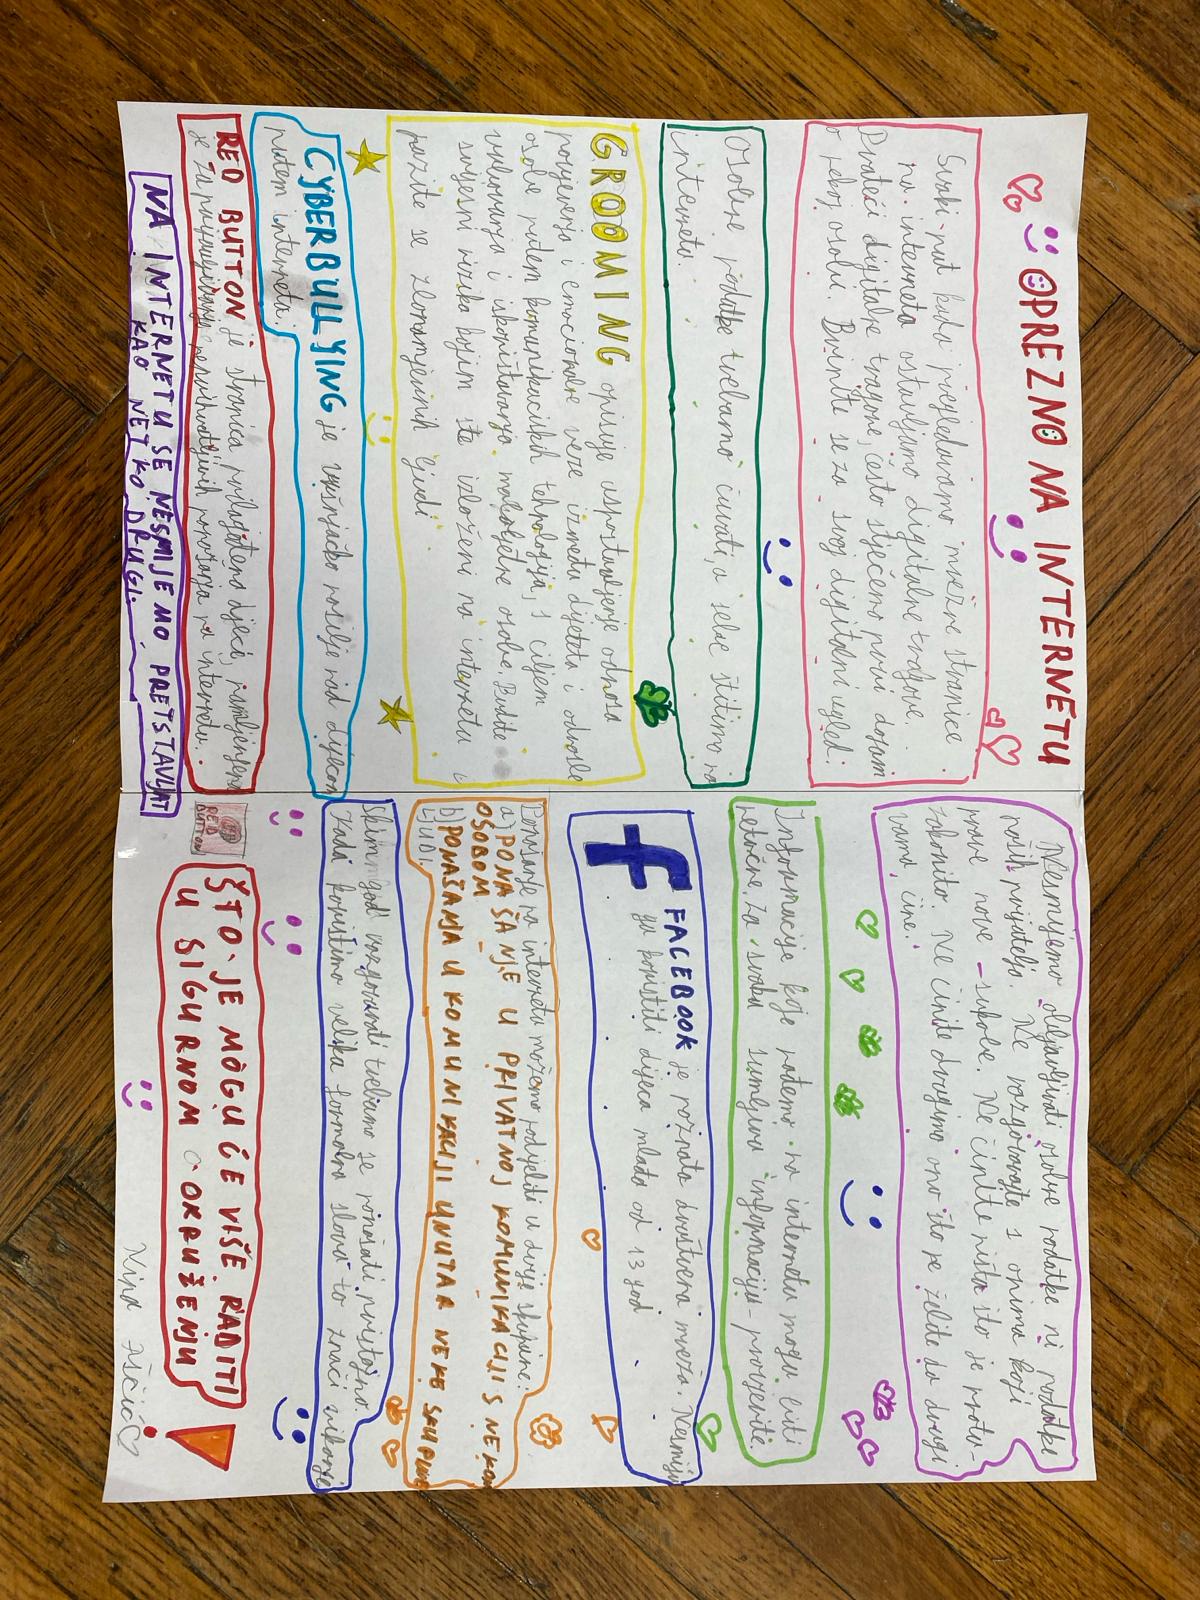 OPREZNO NA INTERNETU
Svaki put kada pregledavamo mrežne stranice
na internetu ostavljamo digitalne tragove.
Prateći digitalne tragove, često stječemo prvi dojam
o nekoj osobi. Brinite se za svoj digitalni ugled.
Osobne podatke trebamo čuvati, a sebe štitimo na
internetu.
GROOMING opisuje uspostavljanje odnosa
povjerenja i emocionalne veze između djeteta i odrasle
osobe putem komunikacijskih tehnologija, s ciljem
i iskorištavanja maloljetne osobe. Budite
svjesni rizika kojim ste izloženi na internetu
pazite se zlonamjernih ljudi
CYBERBULLYING je vršnjačko nasilje nad djecom
putem interneta.
RED BUTTON je stranica prilagođena djeci, namijenjena
je za prijavljivanje neprihvatljivih ponašanja na internetu.
NA INTERNETU SE NESMIJEMO PRETSTAVLJAT
KAO NETKO DRUGI.
Nesmijemo objavljivati osobne podatke ni podatke
naših prijatelja. Ne razgovarajte s onima koji
prave nove sukobe. Ne činite ništa što je protu-
zakonito. Ne činite drugima ono što ne želite da drugi
vama čine.
Informacije koje nađemo na internetu mogu biti
netočne. Za svaku sumljivu informaciju - provjerite.
f FACEBOOK je poznata društvena mreža. Nesmiju
ga koristiti dijeca mlađa od 13 god
Ponašanje na internetu možemo podjeliti u dvije skupine:
a) PONAŠANJE U PRIVATNOJ KOMUNIKACIJI S NEKOM
OSOBOM
b) PONAŠANJA U KOMUNIKACIJI UNUTAR NEKE SKUPINE
LJUDI.
S kim god razgovarali trebamo se ponašati pristojno.
Kada koristimo velika formalna slova to znači vikanje
RED
BUTTON
ŠTO JE MOGUĆE VIŠE RADITI
U SIGURNOM OKRUŽENJU
Nina